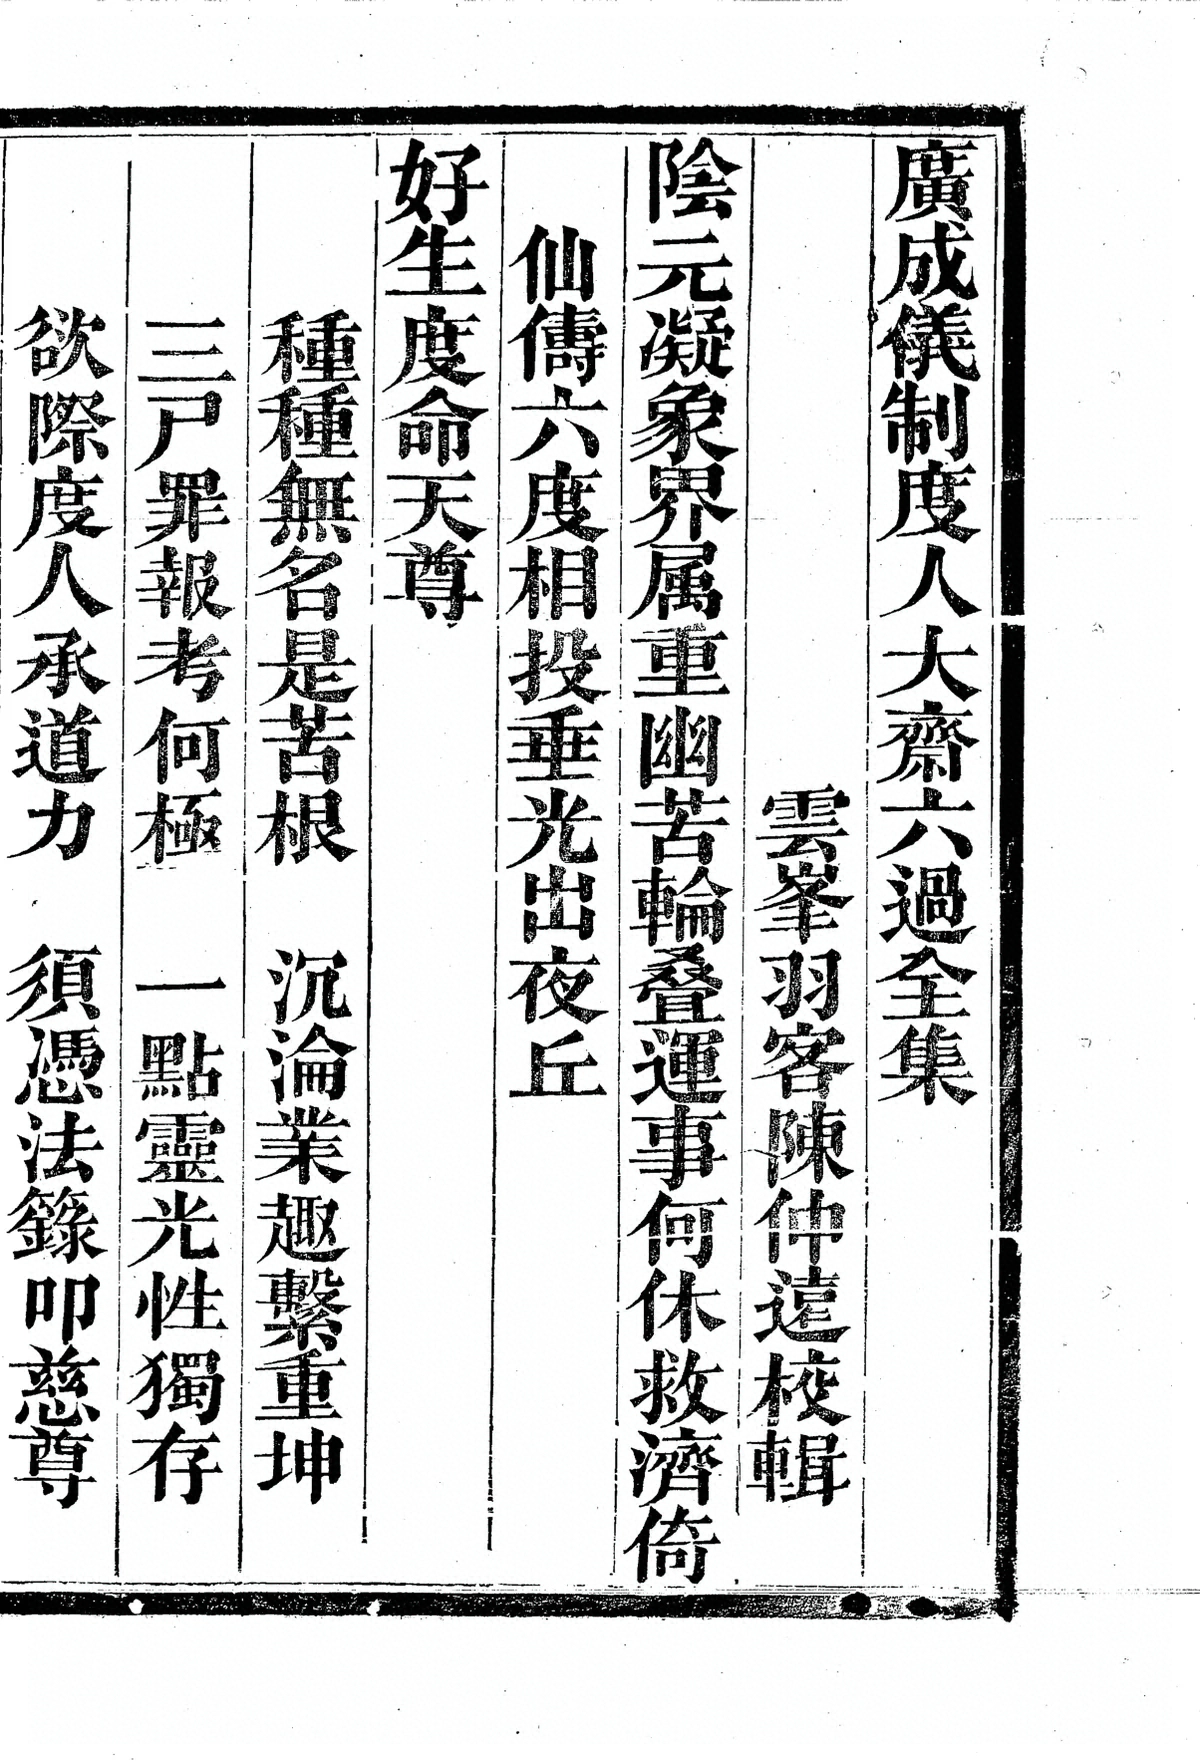 廣成儀制度人大齋六過全集
雲峯羽客陳仲遠校輯
陰元凝象界属重幽苦輪叠運事何休救濟倚
仙儔六度相投垂光出夜丘
好生度命天尊
種種無名是苦根　沉淪業趣繫重坤
三尸罪報考何極　一點靈光性獨存
欲際度人承道力　須憑法籙叩慈尊